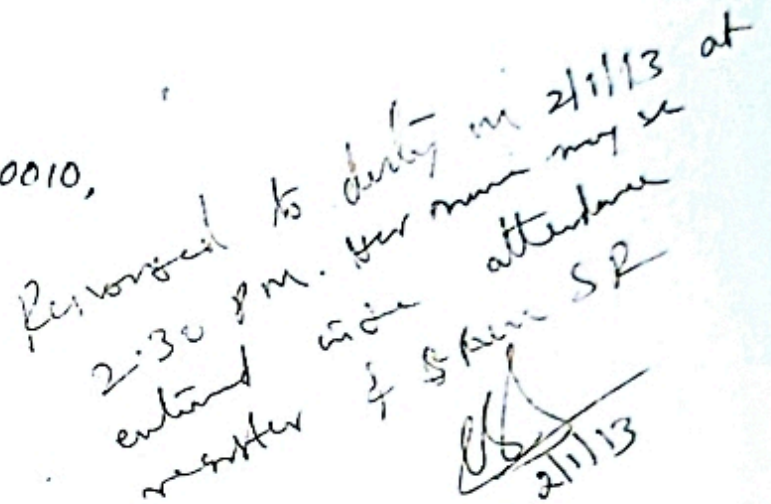 0010,
to duty on 2/1/13 at
2.30 PM. Her name may be
entered in the attendance
register & SR
2/1/13